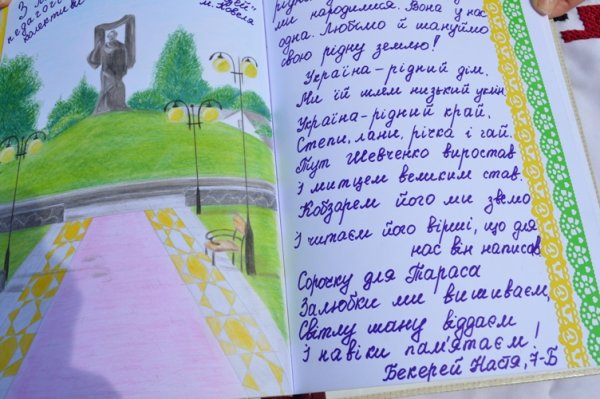 педагогі
колективі
м. Ковеля
ми народилися. Вона у нас
одна. Любємо й шануймо
свою рідну землю!
Україна – рідний дім.
Ми їй шлем низький уклін.
Україна – рідний край,
Степи, лани, річка і гай.
Тут Шевченко виростав
І митцем великим став.
Кобзарем його ми звемо
І читаєм його вірші, що для
нас він написав
Сорочку для Тараса
Залюбки ми вишиваєм,
Світлу шану віддаєм
І навіки пам'ятаєм!
Бекерей Настя, 7-Б